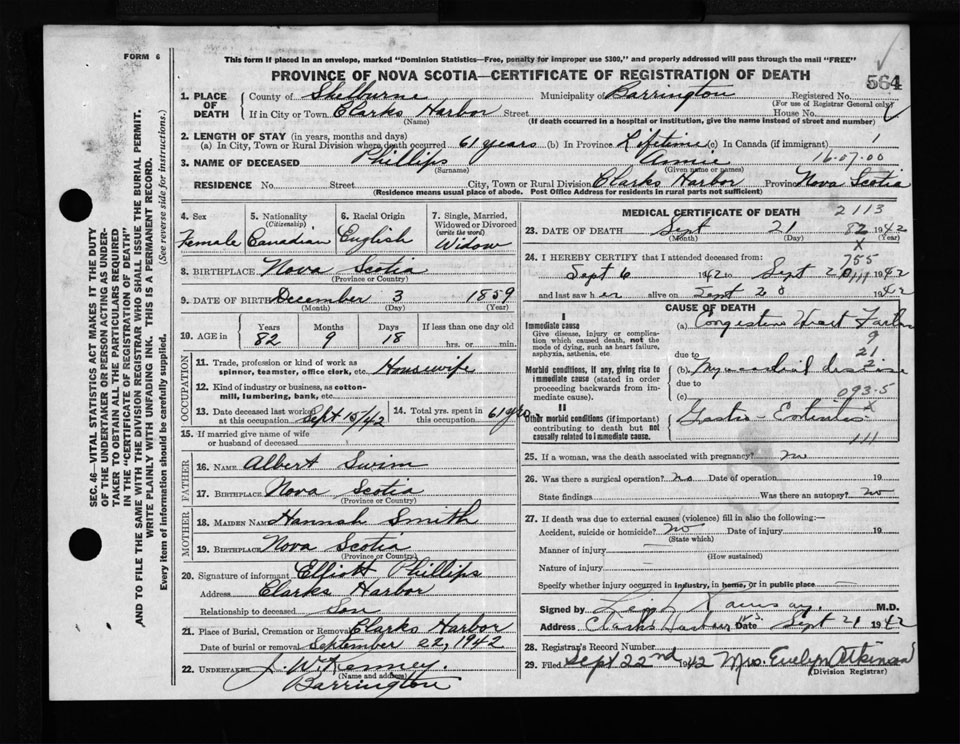 FORM 6
This form if placed in an envelope, marked "Dominion Statistics—Free, penalty for improper use $300," and properly addressed will pass through the mail "FREE"
PROVINCE OF NOVA SCOTIA—CERTIFICATE OF REGISTRATION OF DEATH
564
1. PLACE OF DEATH
County of Shelburne Municipality of Barrington Registered No.
(For use of Registrar General only)
If in City or Town Clarks Harbor Street House No.
(Name) (If death occurred in a hospital or institution, give the name instead of street and number)
2. LENGTH OF STAY (in years, months and days)
(a) In City, Town or Rural Division where death occurred 61 years (b) In Province Lifetime (c) In Canada (if immigrant) 1
3. NAME OF DECEASED Phillips Annie 16-07-00
(Surname) (Given name or names)
RESIDENCE No. Street City, Town or Rural Division Clarks Harbor Province Nova Scotia
(Residence means usual place of abode. Post Office Address for residents in rural parts not sufficient)
SEC. 46—VITAL STATISTICS ACT MAKES IT THE DUTY
OF THE UNDERTAKER OR PERSON ACTING AS UNDER-
TAKER TO OBTAIN ALL THE PARTICULARS REQUIRED
IN THE "CERTIFICATE OF REGISTRATION OF DEATH"
AND TO FILE THE SAME WITH THE DIVISION REGISTRAR WHO SHALL ISSUE THE BURIAL PERMIT.
WRITE PLAINLY WITH UNFADING INK. THIS IS A PERMANENT RECORD.
Every item of information should be carefully supplied. (See reverse side for instructions.)
4. Sex
Female
5. Nationality
(Citizenship)
Canadian
6. Racial Origin
English
7. Single, Married, Widowed or Divorced
(write the word)
Widow
8. BIRTHPLACE Nova Scotia
(Province or Country)
9. DATE OF BIRTH December 3 1859
(Month) (Day) (Year)
10. AGE in
Years Months Days If less than one day old
82 9 18 hrs. or min.
OCCUPATION
11. Trade, profession or kind of work as
spinner, teamster, office clerk, etc. Housewife
12. Kind of industry or business, as cotton-
mill, lumbering, bank, etc.
13. Date deceased last worked at this occupation Sept 15/42
14. Total yrs. spent in this occupation 61 yrs
15. If married give name of wife
or husband of deceased
FATHER
16. NAME Albert Swim
17. BIRTHPLACE Nova Scotia
(Province or Country)
MOTHER
18. MAIDEN NAME Hannah Smith
19. BIRTHPLACE Nova Scotia
(Province or Country)
20. Signature of informant Elliott Phillips
Address Clarks Harbor
Relationship to deceased Son
21. Place of Burial, Cremation or Removal Clarks Harbor
Date of burial or removal September 22, 1942
22. UNDERTAKER J. W. Kenney.
(Name and address)
Barrington
MEDICAL CERTIFICATE OF DEATH 2113
23. DATE OF DEATH Sept 21 82 1942
(Month) (Day) X (Year)
24. I HEREBY CERTIFY that I attended deceased from: 755
Sept 6 1942 to Sept 20 111 1942
and last saw her alive on Sept 20 1942
CAUSE OF DEATH
I
Immediate cause
Give disease, injury or complica-
tion which caused death, not the
mode of dying, such as heart failure,
asphyxia, asthenia, etc.
(a) Congestive Heart Failure
9
due to 21
Morbid conditions, if any, giving rise to
immediate cause (stated in order
proceeding backwards from im-
mediate cause).
(b) Myocardial disease
2
due to
(c) 093-5
X
II
Other morbid conditions (if important)
contributing to death but not
causally related to immediate cause.
Gastro-Enteritis
111
25. If a woman, was the death associated with pregnancy? no
26. Was there a surgical operation? no Date of operation 19
State findings Was there an autopsy? no
27. If death was due to external causes (violence) fill in also the following:—
Accident, suicide or homicide? no Date of injury 19
(State which)
Manner of injury
(How sustained)
Nature of injury
Specify whether injury occurred in industry, in home, or in public place
Signed by M.D.
Address Clarks Harbour N.S. Date Sept 21 1942
28. Registrar's Record Number
29. Filed Sept 22nd 1942 Mrs. Evelyn Atkinson
(Division Registrar)